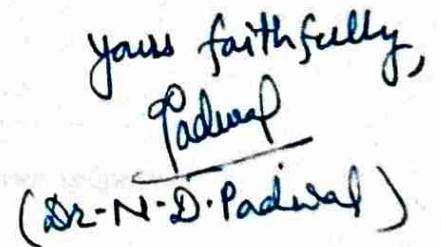 Yours faithfully,
Padwal
(Dr-N-D.Padwal)